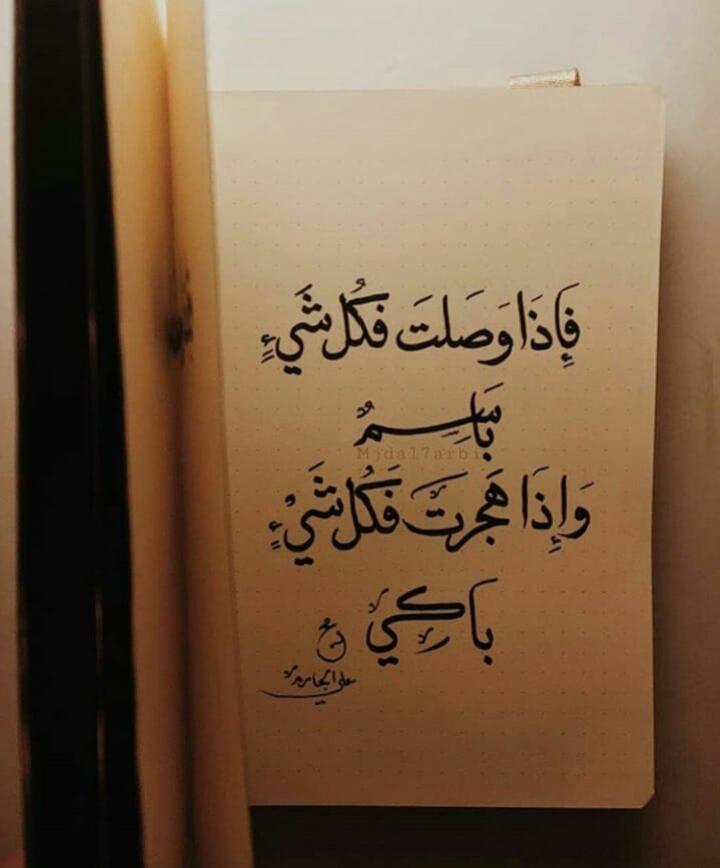 فَإِذَا وَصَلتَ فَكُل شَيءٍ
بَاسِمٌ
Mjdal7arbi
وَإِذَا هَجَرتَ فَكُل شَيْءٍ
بَاكِي
علي الجابري